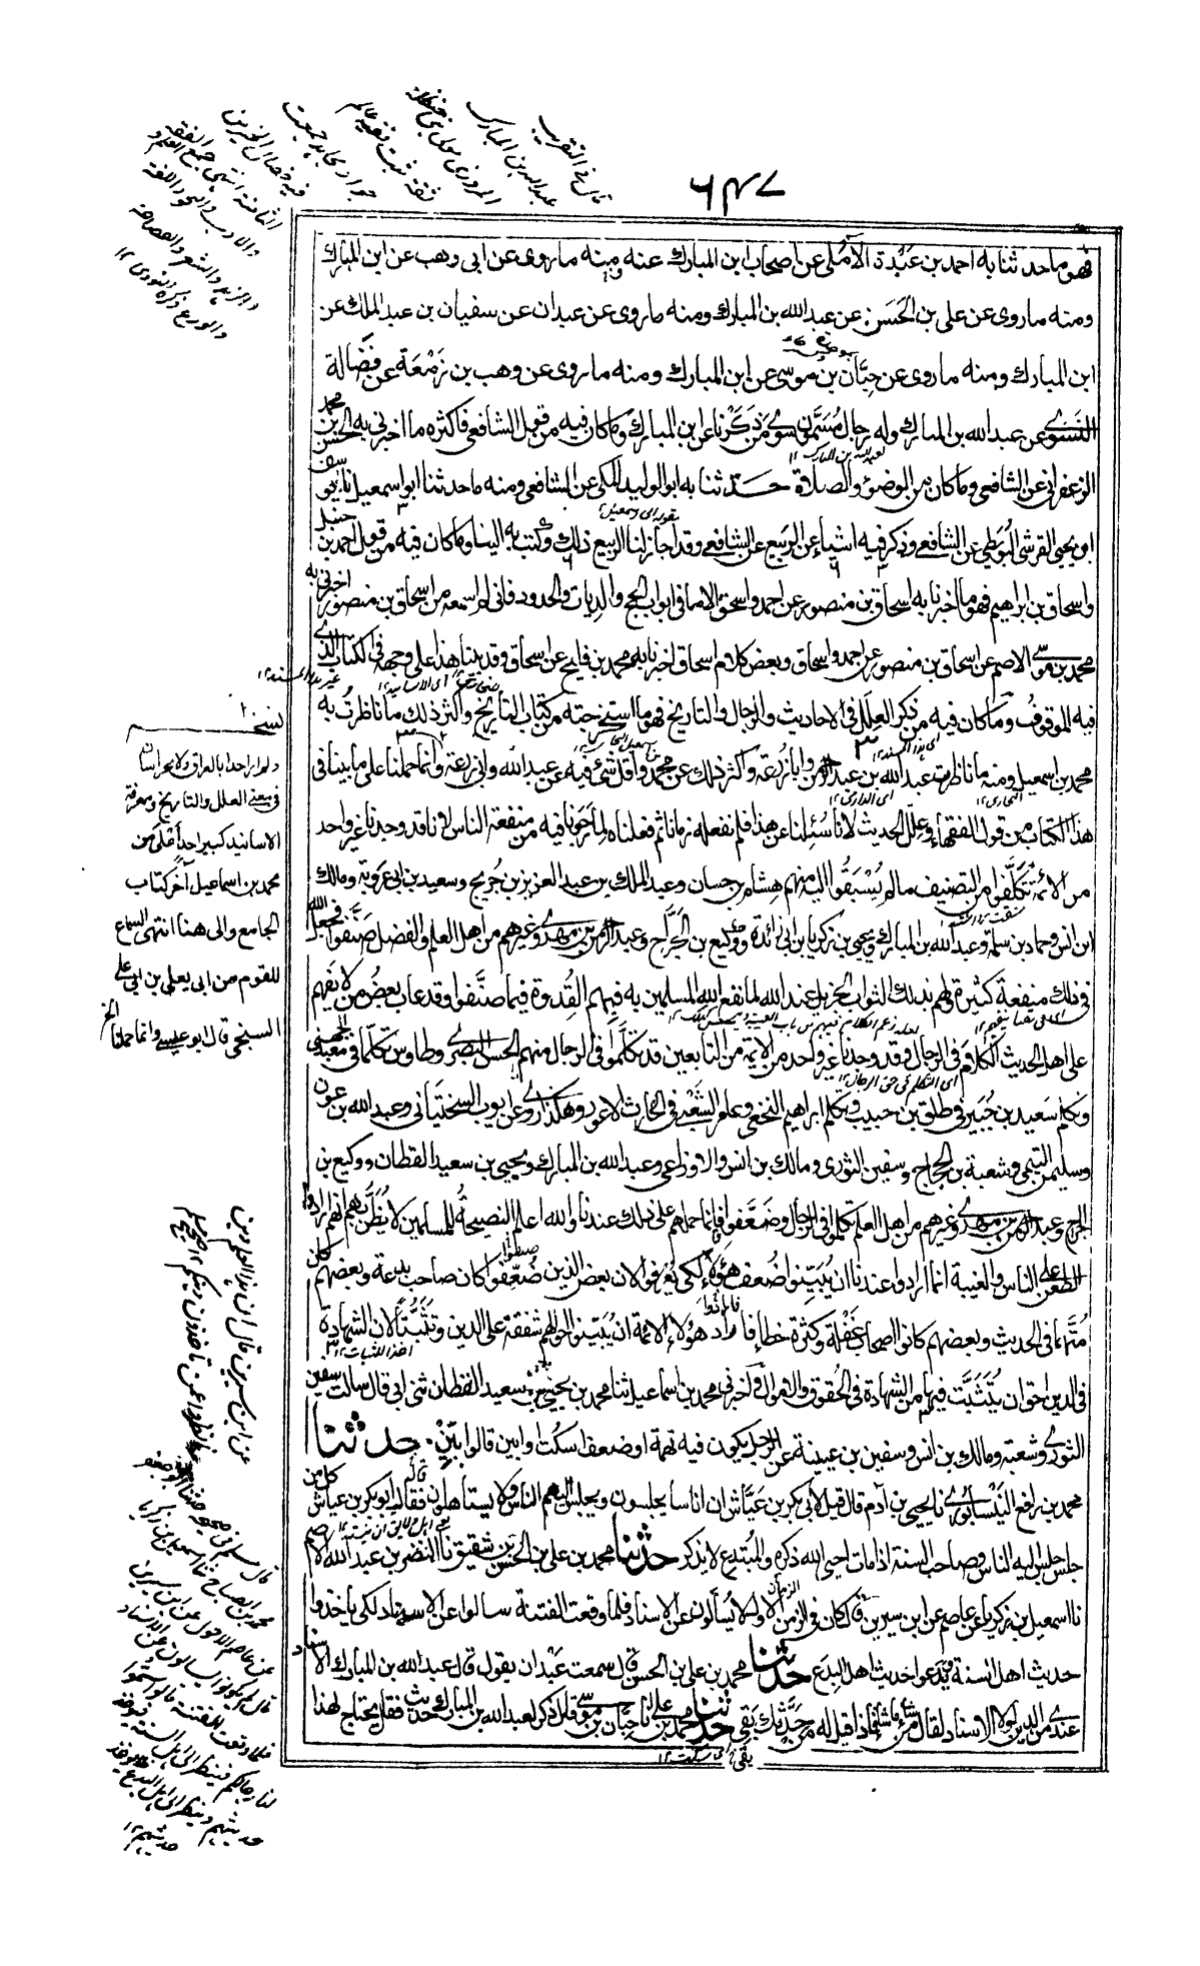 ٦٤٧
فهو ما حدثنا به احمد بن عَبْدة الآمُلى عن اصحاب ابن المبارك عنه ومنه ما روى عن ابى وهب عن ابن المبارك
ومنه ما روى عن على بن الحَسَن عن عبد الله بن المبارك ومنه ما روى عن عبدان عن سفيان بن عبد الملك عن
ابن المبارك ومنه ما روى عن حِبَّان بن موسى عن ابن المبارك ومنه ما روى عن وهب بن زَمْعَة عن فَضَالة
النَسَوى عن عبد الله بن المبارك وله رجال مُسَمَّون سوى من ذكرنا عن ابن المبارك وما كان فيه من قول الشافعى فاكثره ما اخبرنى به الحسن بن محمد
الزعفرانى عن الشافعى وما كان من الوضوء والصلاة حدثنا به ابو الوليد المكى عن الشافعى ومنه ما حدثنا ابو اسمعيل نا يوسف
ابو يحيى القرشى البُوَيطى عن الشافعى وذكر فيه اشياء عن الربيع عن الشافعى وقد اجاز لنا الربيع ذلك وكتب به الينا وما كان فيه من قول احمد بن حنبل
واسحاق بن ابراهيم فهو ما اخبرنا به اسحاق بن منصور عن احمد واسحق الا ما فى ابواب الحج والديات والحدود فانى لم اسمعه من اسحاق بن منصور اخبرنى به
محمد بن موسى الاصم عن اسحاق بن منصور عن احمد واسحاق وبعض كلام اسحاق اخبرنا به محمد بن فليح عن اسحاق وقد بينا هذا على وجهه فى الكتاب الذى
فيه الموقوف وما كان فيه من ذكر العِلَل فى الاحاديث والرجال والتاريخ فهو ما استخرجته من كتاب التاريخ واكثر ذلك ما ناظرتُ به
محمد بن اسمعيل ومنه ما ناظرت عبد الله بن عبد الرحمن وابا زُرعة واكثر ذلك عن محمد واقل شئ فيه عن عبد الله وابى زرعة وانما حملنا على ما بينا فى
هذا الكتاب من قول الفقهاء وعلل الحديث لانا سُئِلنا عن هذا فلم نفعله زمانا ثم فعلناه لما رجونا فيه من منفعة الناس لانا قد وجدنا غير واحد
من الائمة تكلَّفوا من التصنيف ما لم يُسْبَقُوا اليه منهم هشام بن حسان وعبد الملك بن عبد العزيز بن جريج وسعيد بن ابى عروبة ومالك
ابن انس وحماد بن سلمة وعبد الله بن المبارك ويحيى بن زكريا بن ابى زائدة ووكيع بن الجَرَّاح وعبد الرحمن بن مهدى وغيرهم من اهل العلم والفضل صَنَّفوا فجعل الله
فى ذلك منفعة كثيرة ولهم بذلك الثواب الجزيل عند الله لما نفع الله المسلمين به فبهم القُدوة فيما صنَّفوا وقد عاب بعضُ من لا يَفهم
على اهل الحديث الكلامَ فى الرجال وقد وجدنا غير واحد من الائمة من التابعين قد تكلَّموا فى الرجال منهم الحسن البصرى وطاوس تكلَّما فى معبد الجهنى
وتكلم سَعِيد بن جُبَير فى طلق بن حبيب وتكلم ابراهيم النخعى وعامر الشَعْبى فى الحارث الاعور وهكذا روى عن ايوب السختيانى وعبد الله بن عون
وسليمن التيمى وشعبة بن الحجاج وسفين الثورى ومالك بن انس والاوزاعى وعبد الله بن المبارك ويحيى بن سعيد القطان ووكيع بن
الجراح وعبد الرحمن بن مهدى وغيرهم من اهل العلم تكلموا فى الرجال وضَعَّفوا فانما حملهم على ذلك عندنا والله اعلم النصيحةُ للمسلمين لا يُظَن بهم انهم ارادوا
الطعن على الناس والغيبة انما ارادوا عندنا ان يُبَيِّنوا ضُعف هؤلاء لكى يُعرَفوا لان بعض الذين ضُعِّفوا كان صاحب بدعة وبعضهم كان
مُتَّهَما فى الحديث وبعضهم كانوا اصحاب غَفْلة وكثرة خطاء فاراد هؤلاء الائمة ان يُبَيِّنوا احوالهم شفقة على الدين وتَثَبُّتًا لان الشهادة
فى الدين احق ان يُتَثَبَّت فيها من الشهادة فى الحُقوق والاموال واخبرنى محمد بن اسماعيل ثنا محمد بن يحيى بن سعيد القطان ثنى ابى قال سالت سفين
الثورى وشعبة ومالك بن انس وسفين بن عيينة عن الرجل يكون فيه تهمة او ضعف اسكُت او ابين قالوا بَيِّنْ حدثنا
محمد بن رافع النَيْسابورى نا يحيى بن آدم قال قيل لابى بكر بن عَيَّاش ان اناسا يجلسون ويجلس اليهم الناس ولا يستاهلون فقال ابو بكر بن عياش كل من
جلس جلس اليه الناس وصاحب السنة اذا مات احيى الله ذكره والمُبتدِع لا يذكر حدثنا محمد بن على بن الحسن بن شقيق نا النضر بن عبد الله الاصم
نا اسمعيل بن زكريا عن عاصم عن ابن سيرين قال كان فى الزمن الاول لا يُسألون عن الاسناد فلما وقعت الفتنة سالوا عن الاسناد لكى ياخذوا
حديث اهل السنة ويَدَعوا حديث اهل البِدَع حدثنا محمد بن على بن الحسن قال سمعت عَبْدان يقول قال عبد الله بن المبارك الاسناد
عندى من الدين لولا الاسناد لقال من شاء ما شاء فاذا قيل له من حَدَّثك بَقِى حدثنا محمد بن على انا حِبَّان بن موسى قال ذكر لعبد الله بن المبارك حديث فقال يحتاج لهذا
قال فى التقريب
عبد الله بن المبارك
المروزى مولى بنى حنظلة
ثقة ثبت فقيه عالم
جواد مجاهد جمعت
فيه خصال الخير من
الثامنة انتهى جمع الفقه
والادب والنحو واللغة
والزهد والشعر والفصاحة
والورع ذكره النووى ١٢
نسخة
ولم ار احدا بالعراق ولا بخراسان
فى معنى العلل والتاريخ ومعرفة
الاسانيد كبير احدٍ أعلم من
محمد بن اسماعيل آخر كتاب
الجامع والى هنا انتهى السماع
للقوم من ابى يعلى بن ابى على
السنجى قال ابو عيسى وانما حملنا الخ
عن ابن سيرين قال ان هذا العلم دين
فانظروا عمن تاخذون دينكم ١٢ صحيح مسلم
قال مسلم فى صحيحه حدثنا ابو جعفر
محمد بن الصباح ثنا اسمعيل بن زكريا
عن عاصم الاحول عن ابن سيرين
قال لم يكونوا يسالون عن الاسناد
فلما وقعت الفتنة قالوا سموا
لنا رجالكم فينظر الى اهل السنة فيوخذ
حديثهم وينظر الى اهل البدع فلا يوخذ
حديثهم ١٢